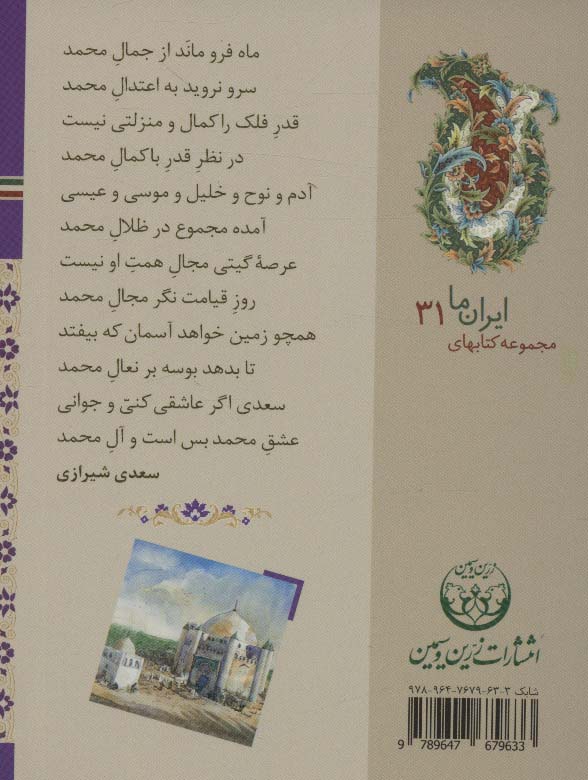 ماه فرو مانَد از جمالِ محمد
سرو نروید به اعتدالِ محمد
قدرِ فلک را کمال و منزلتی نیست
در نظرِ قدرِ با کمالِ محمد
آدم و نوح و خلیل و موسی و عیسی
آمده مجموع در ظلالِ محمد
عرصهٔ گیتی مجالِ همتِ او نیست
روزِ قیامت نگر مجالِ محمد
همچو زمین خواهد آسمان که بیفتد
تا بدهد بوسه بر نعالِ محمد
سعدی اگر عاشقی کنیّ و جوانی
عشقِ محمد بس است و آلِ محمد
سعدی شیرازی
ایران ما ۳۱
مجموعه کتابهای
زرین و سیمین
انتشارات زرین و سیمین
شابک ۳-۶۳-۷۶۷۹-۹۶۴-۹۷۸
9 789647 679633